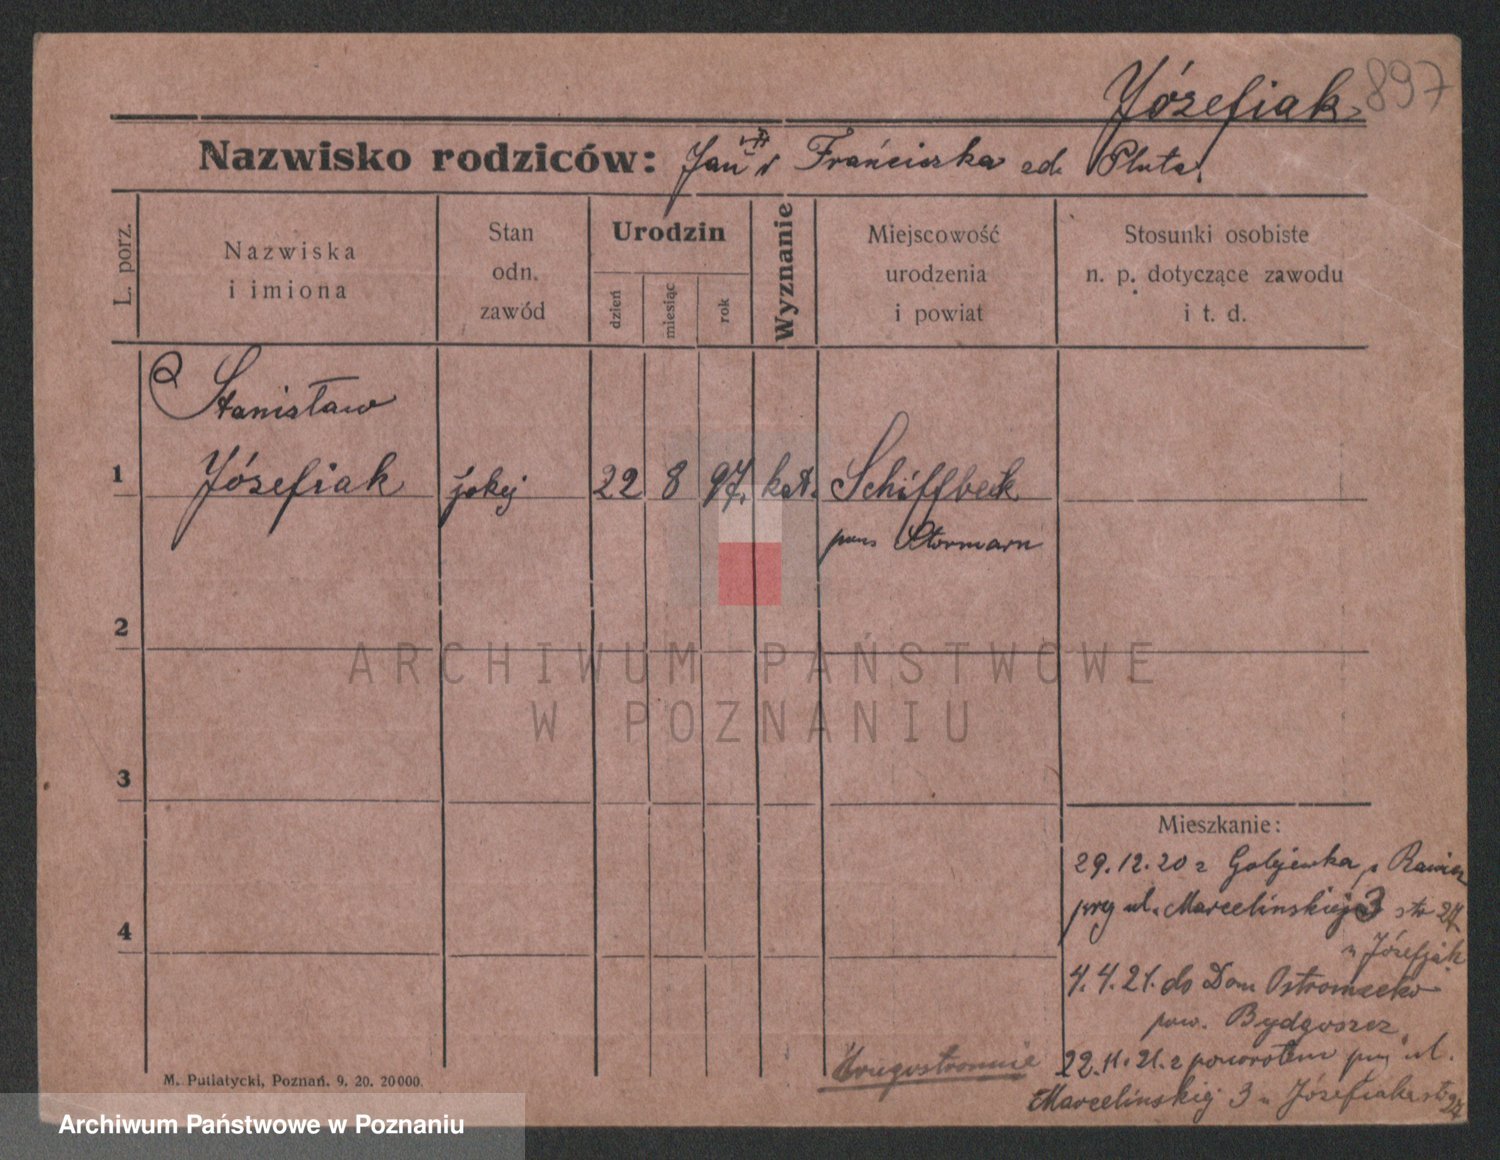 Józefiak 897
Nazwisko rodziców: Jan i Franciszka zd. Pluta.
L. porz.
Nazwiska
i imiona
Stan
odn.
zawód
Urodzin
dzień
miesiąc
rok
Wyznanie
Miejscowość
urodzenia
i powiat
Stosunki osobiste
n. p. dotyczące zawodu
i t. d.
Stanisław
1 Józefiak jokej 22 8 97. kat. Schiffbeck
pow. Stormarn
2
ARCHIWUM PAŃSTWOWE
W POZNANIU
3
Mieszkanie:
29.12.20 z Golejewka p Rawicz
przy ul. Marcelińskiej 3 str 27
u Józefiak
4.4.21. do Dom Ostromecko
pow. Bydgoszcz
22.11.21. z powrotem przy ul.
Marcelińskiej 3 u Józefiaka str 27
4
Drugostronnie
M. Putiatycki, Poznań. 9. 20. 20000.
Archiwum Państwowe w Poznaniu